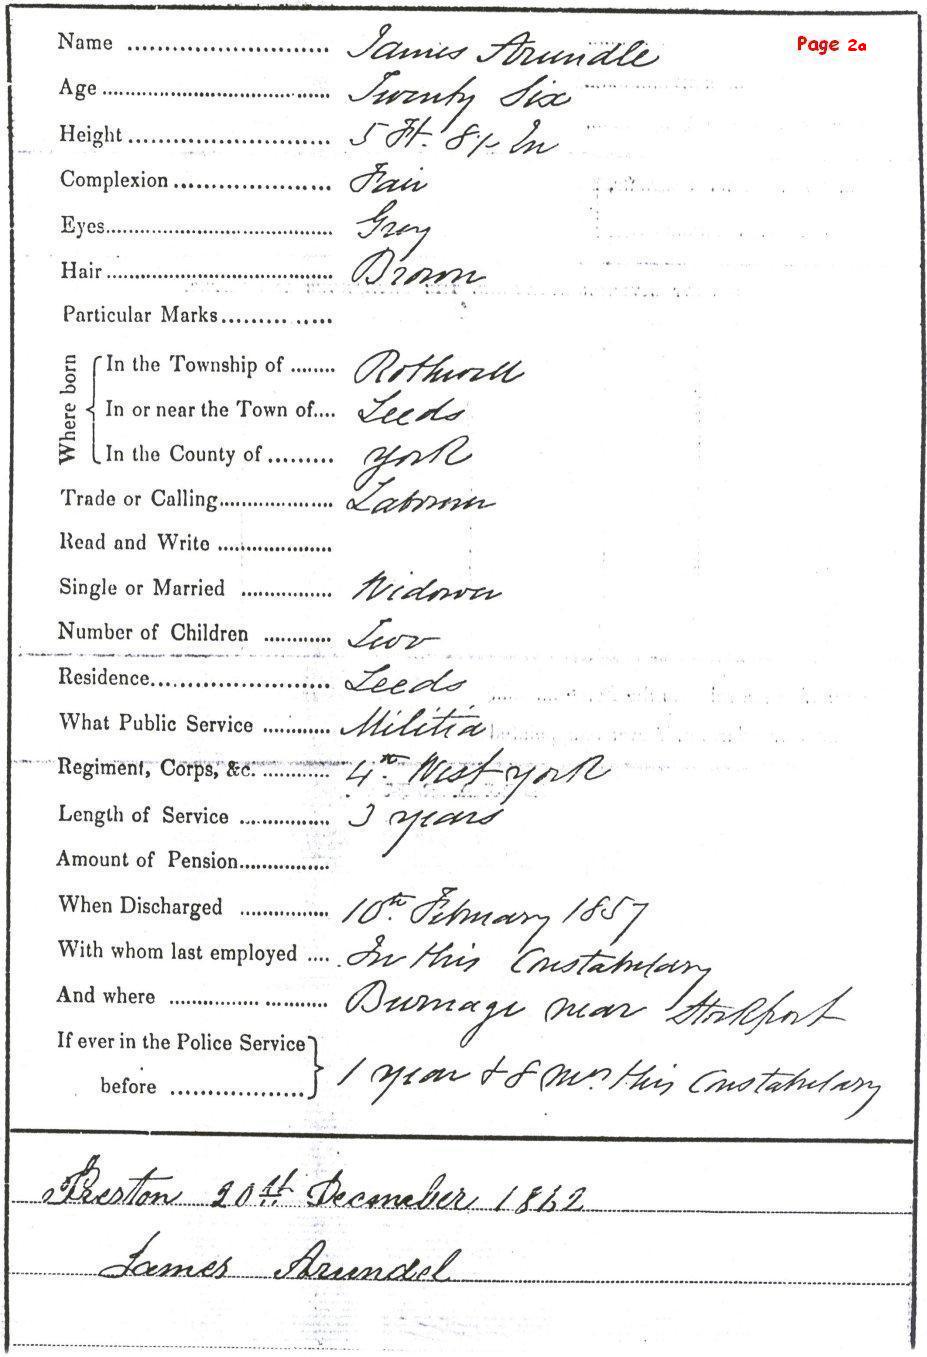 Page 2a
Name .............................. James Arundle
Age .................................. Twenty Six
Height .............................. 5 Ft. 8½ In
Complexion ....................... Fair
Eyes .................................. Grey
Hair .................................. Brown
Particular Marks ......... ......
Where born
In the Township of ........ Rothwell
In or near the Town of .... Leeds
In the County of ......... York
Trade or Calling .................... Labourer
Read and Write ....................
Single or Married ................ Widower
Number of Children ............ Two
Residence .......................... Leeds
What Public Service ............ Militia
Regiment, Corps, &c. ............ 4th West York
Length of Service ................ 3 years
Amount of Pension ................
When Discharged ................ 10th February 1857
With whom last employed .... In this Constabulary
And where ............................ Burnage near Stockport
If ever in the Police Service
before .................... 1 year & 8 mos. this Constabulary
Preston 20th December 1862
James Arundel